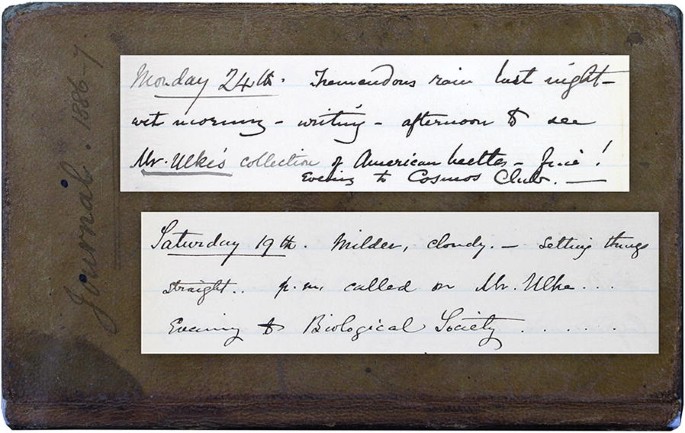 Journal. 1886-7
Monday 24th. Tremendous rain last night –
wet morning – writing – afternoon to see
Mr. Ulke's collection of American beetles – fine!
Evening to Cosmos Club. —
Saturday 19th. Milder, cloudy. – Setting things
straight.. p.m. called on Mr. Ulke...
Evening to Biological Society . . . . . .